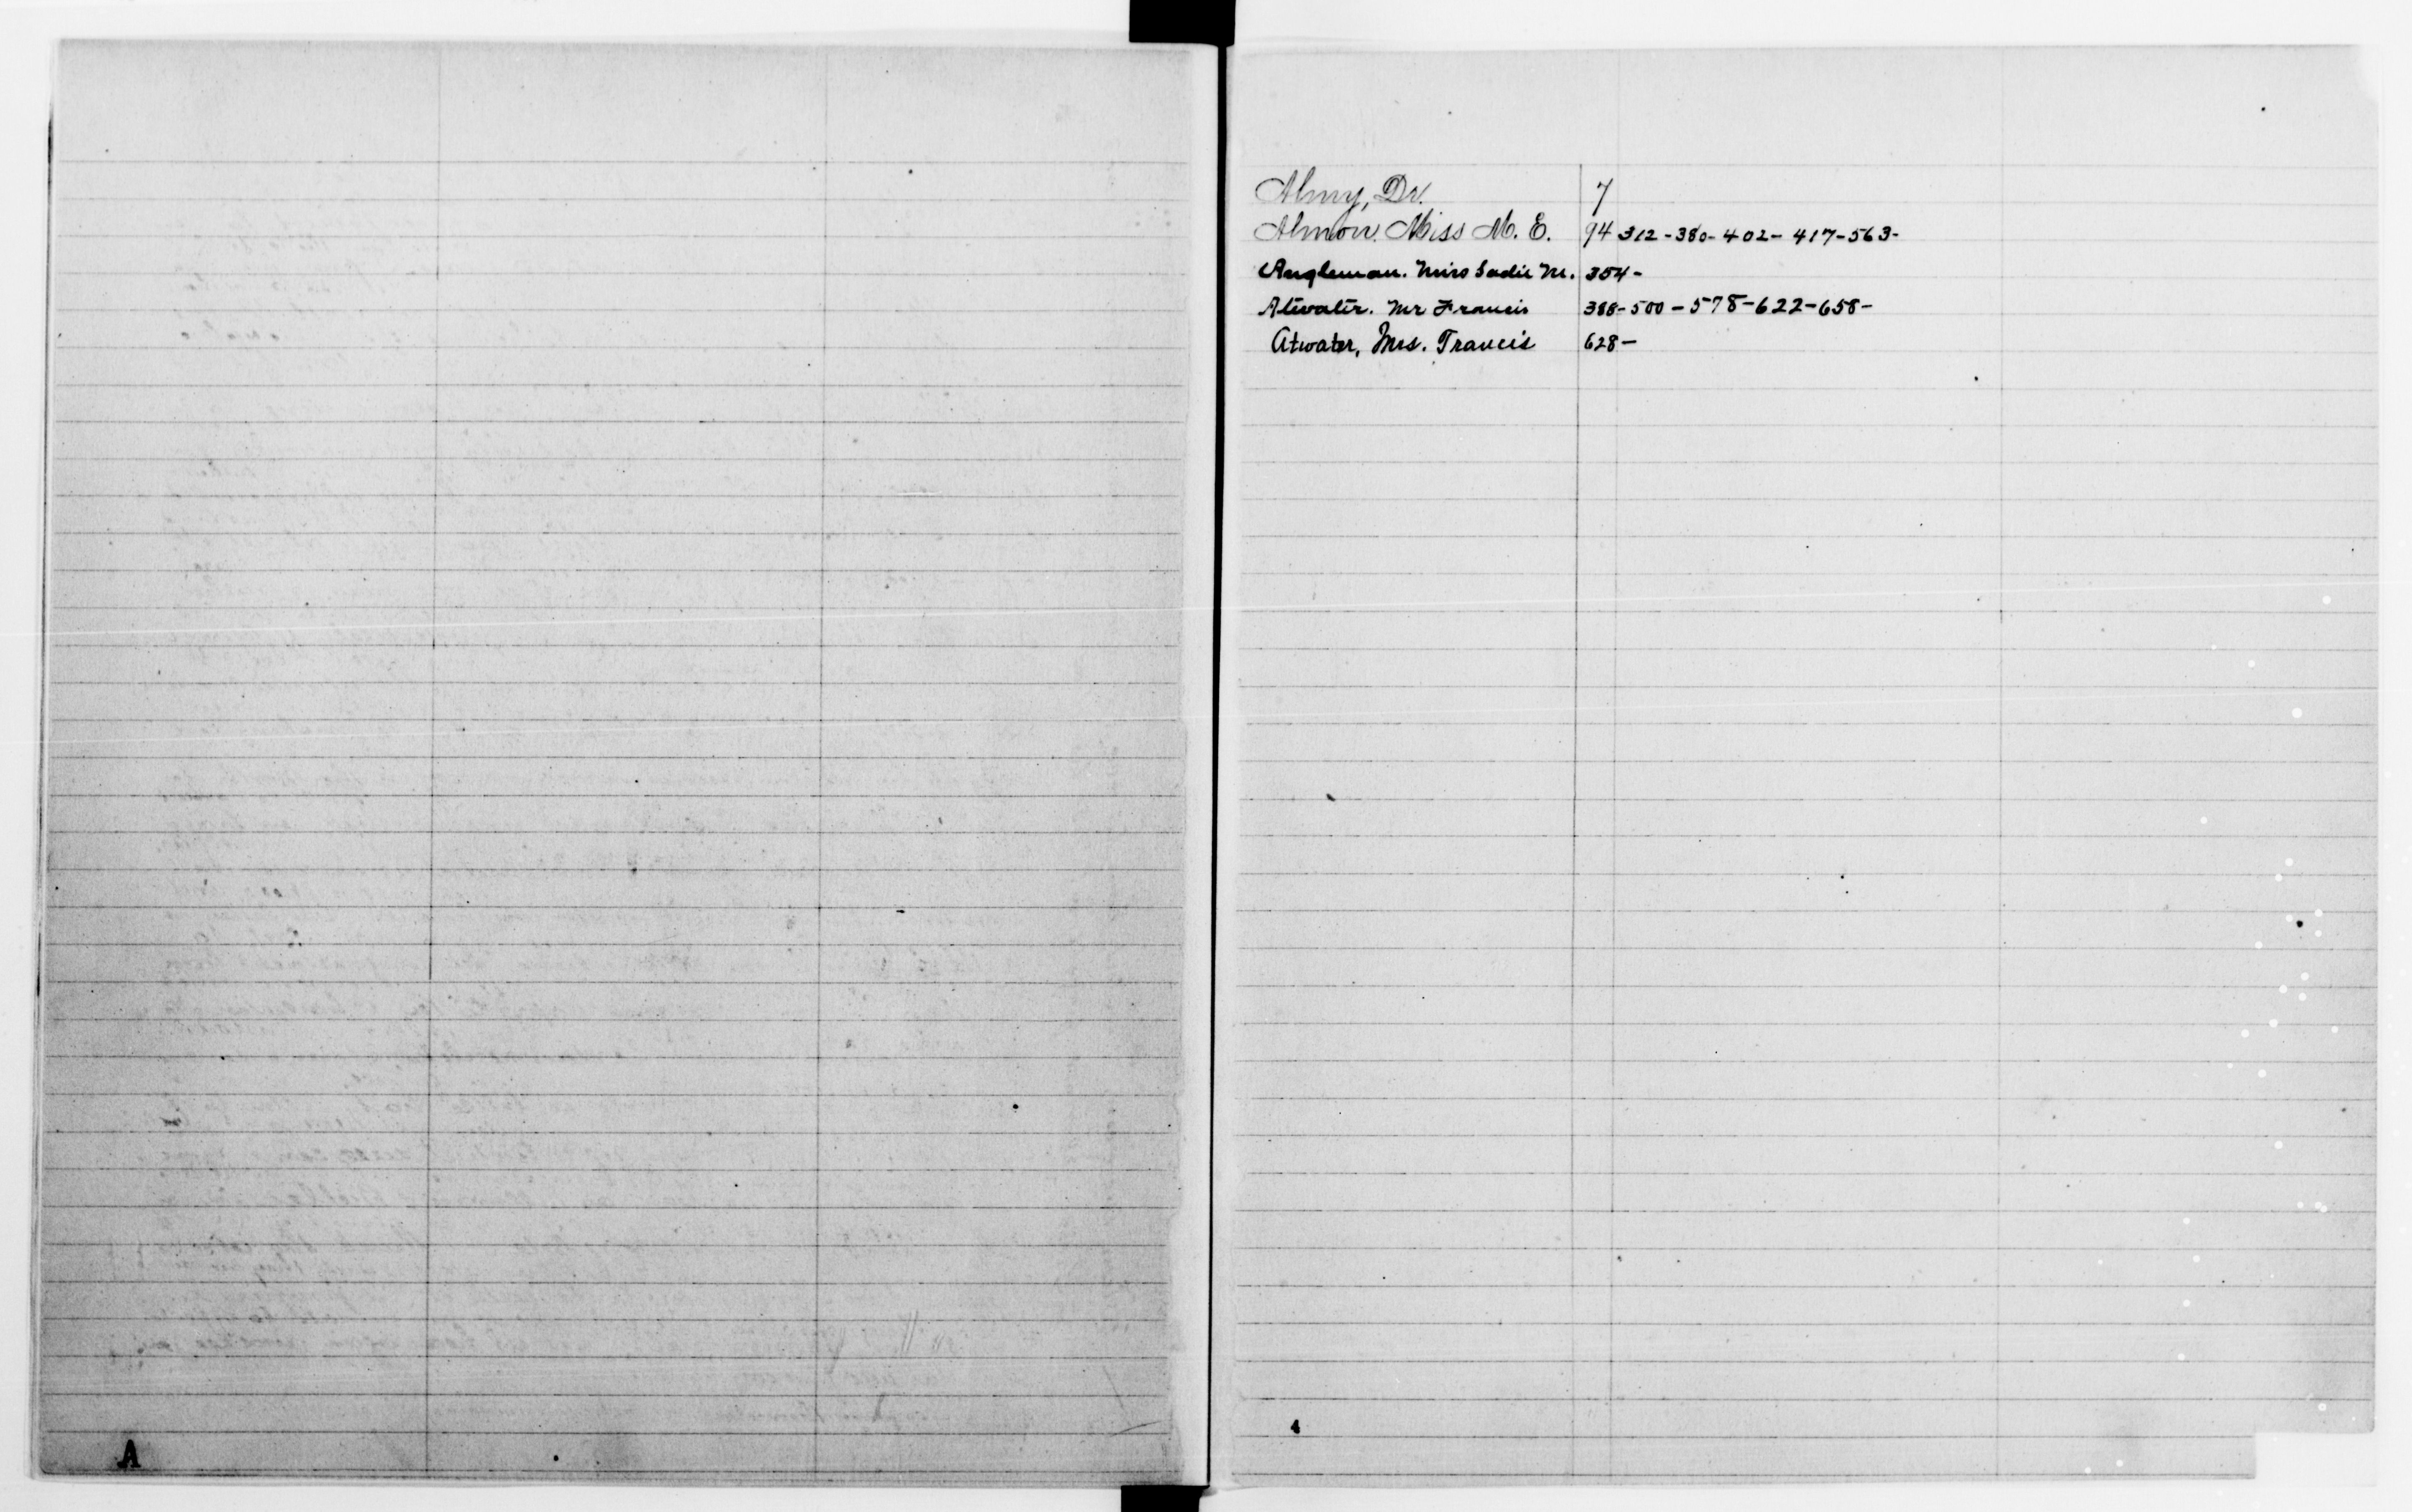 A
Almy, Dr. 7
Almon. Miss M. E. 94 312-380-402-417-563-
Angleman. Miss Sadie M. 354-
Atwater. Mr Francis 388-500-578-622-658-
Atwater, Mrs. Francis 628-
4